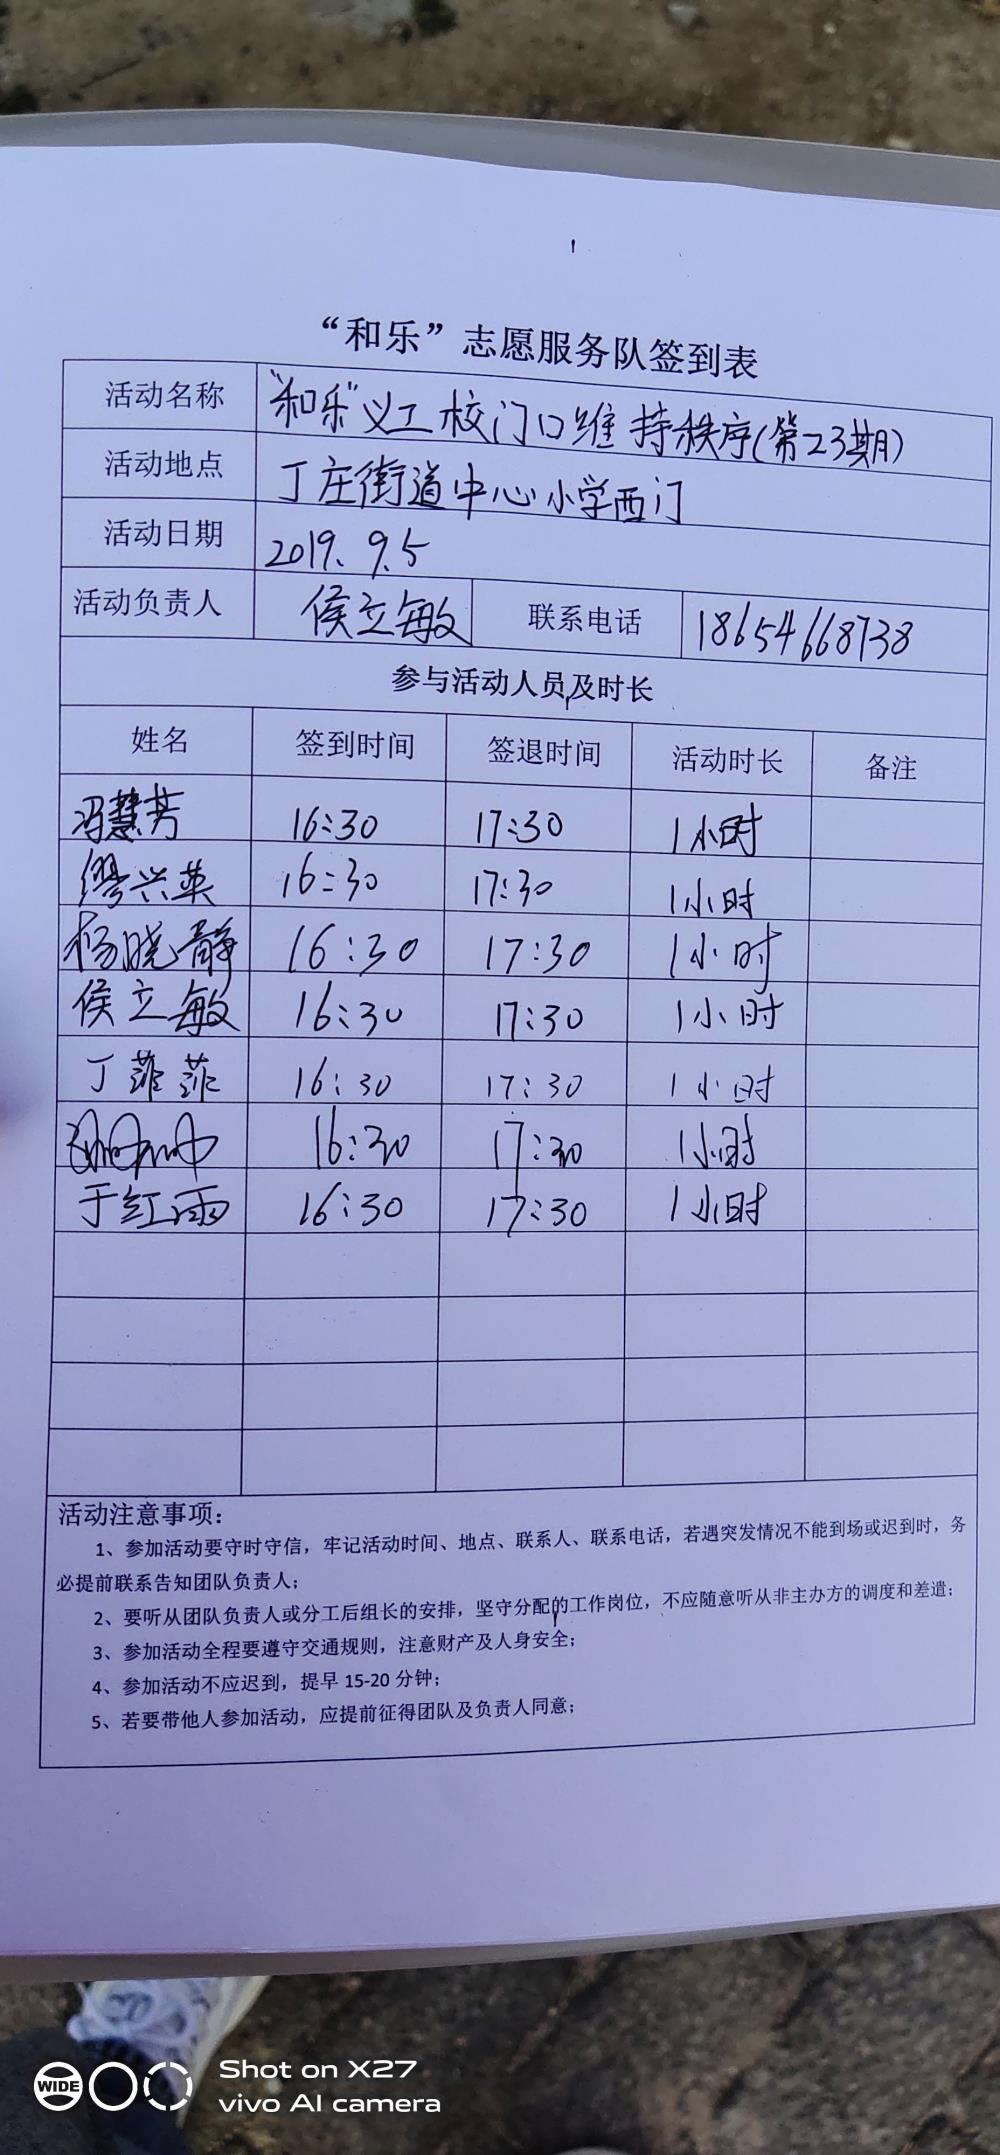 “和乐”志愿服务队签到表
活动名称 “和乐”义工校门口维持秩序(第23期)
活动地点 丁庄街道中心小学西门
活动日期 2019.9.5
活动负责人 侯立敏 联系电话 18654668738
参与活动人员及时长
姓名 签到时间 签退时间 活动时长 备注
冯慧芳 16:30 17:30 1小时
缪兴英 16:30 17:30 1小时
杨晓静 16:30 17:30 1小时
侯立敏 16:30 17:30 1小时
丁菲菲 16:30 17:30 1小时
16:30 17:30 1小时
于红雨 16:30 17:30 1小时
活动注意事项：
1、参加活动要守时守信，牢记活动时间、地点、联系人、联系电话，若遇突发情况不能到场或迟到时，务
必提前联系告知团队负责人；
2、要听从团队负责人或分工后组长的安排，坚守分配的工作岗位，不应随意听从非主办方的调度和差遣；
3、参加活动全程要遵守交通规则，注意财产及人身安全；
4、参加活动不应迟到，提早 15-20 分钟；
5、若要带他人参加活动，应提前征得团队及负责人同意；
WIDE
Shot on X27
vivo AI camera